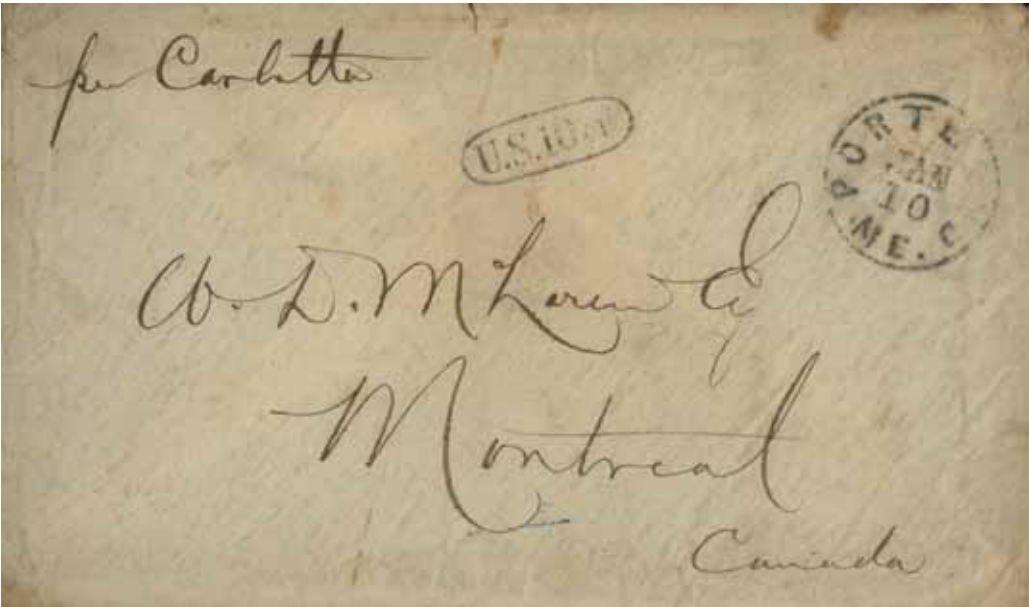 per Carlotta
U.S. 10cts
PORTE
JAN
10
ME. C
W. D. McLaren Esq
Montreal
Canada